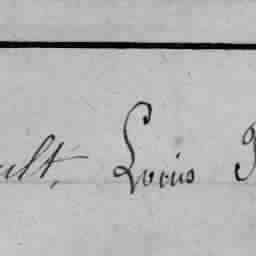 ult, Louis